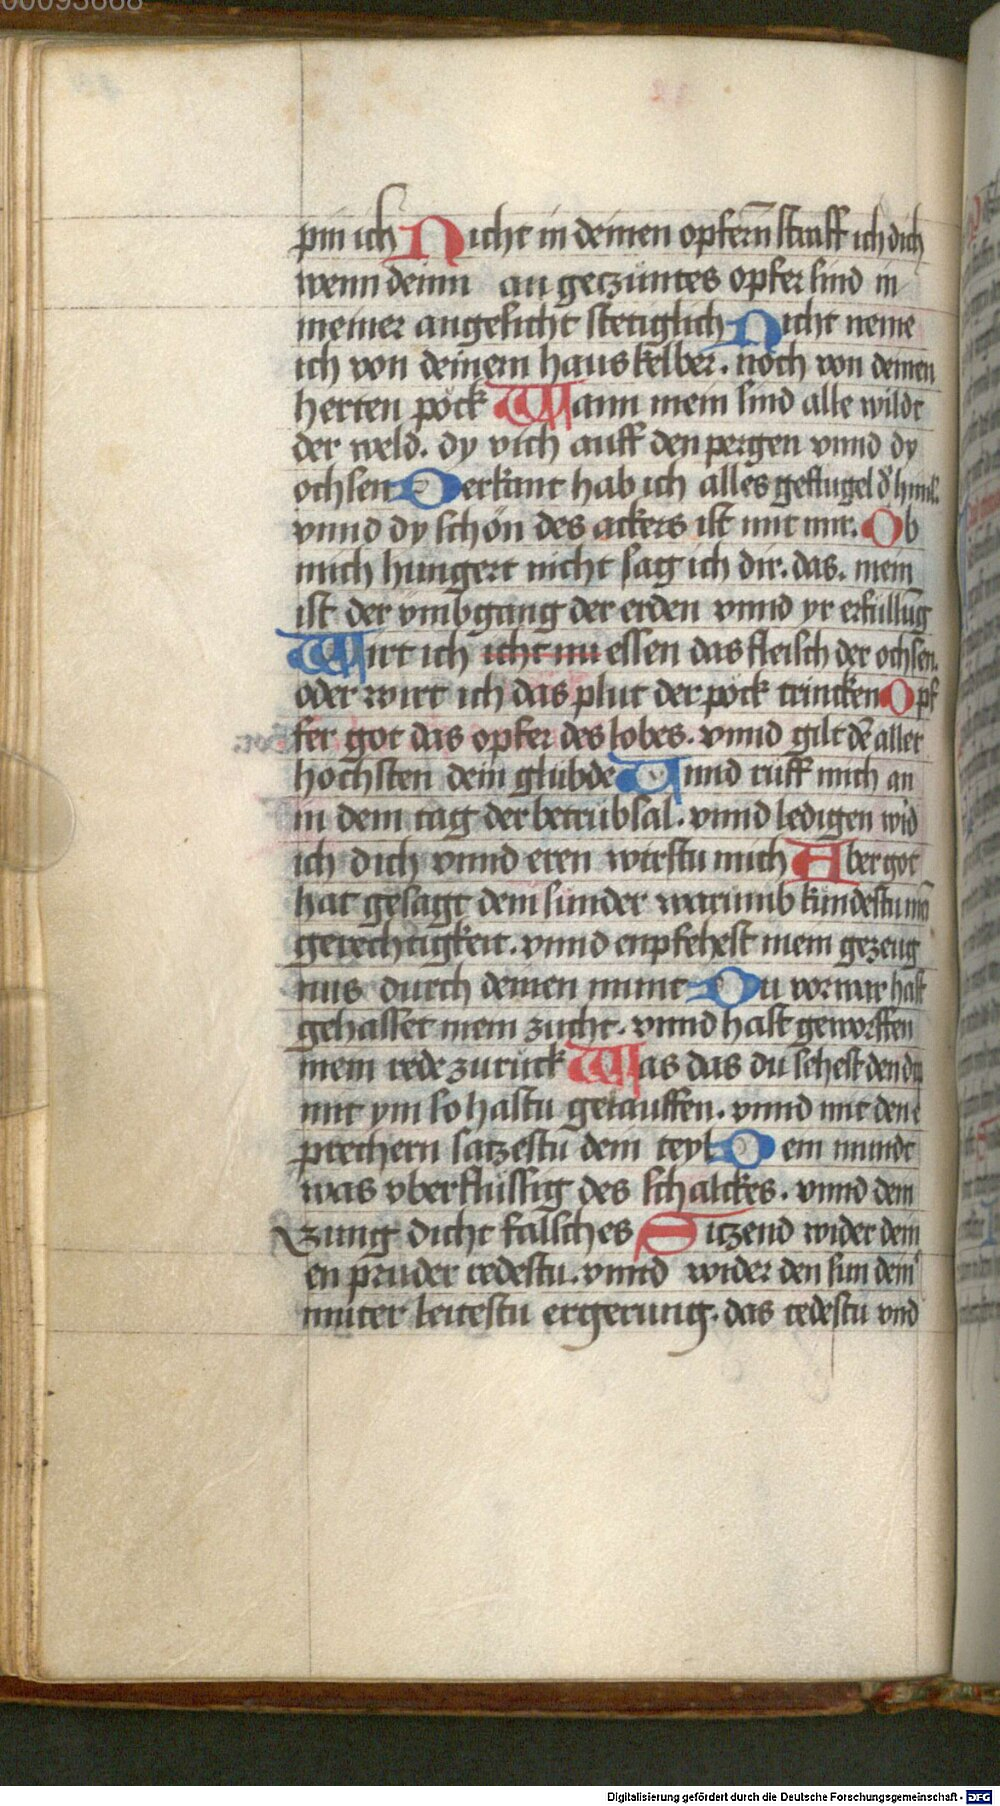 00093668
pin ich Nicht in deinen opfern̄ straff ich dich
wenn deinn an geczuntes opfer sind in
meiner angesicht stetiglich Nicht neme
ich von deinem haus kelber. noch von deinen
herten pöck Wann mein sind alle wildt
der weld. dy vich auff den pergen vnnd dy
ochsen Derkant hab ich alles geflugel d' himl'.
vnnd dy schön des ackers ist mit mir. Ob
mich hungert nicht sag ich dir. das. mein
ist der vmbgang der erden vnnd yr erfullūg
Wirt ich icht nu essen das fleisch der ochsen.
oder wirt ich das plut der pöck trincken Opf
fer got das opfer des lobes. vnnd gilt dē aller
hochsten dein glubde Vnnd ruff mich an
in dem tag der betrubsal. vnnd ledigen wid
ich dich vnnd eren wirstu mich Aber got
hat gesagt dem sunder warumb kundestu mā
gerechtigkeit. vnnd enpfehest mein gezeug
nus durch deinen munt Du vorwar hast
gehasset mein zucht. vnnd hast geworffen
mein rede zuruck Was das du sehest den dip
mit ym so hastu gelauffen. vnnd mit den e
prechern satzestu dein teyl Dein mundt
was vberflussig des schalckes. vnnd dein
zung dicht falsches Sitzend wider dein
en pruder redestu. vnnd wider den sun dein'
muter leitestu ergerung. das redestu vnd
Digitalisierung gefördert durch die Deutsche Forschungsgemeinschaft - DFG